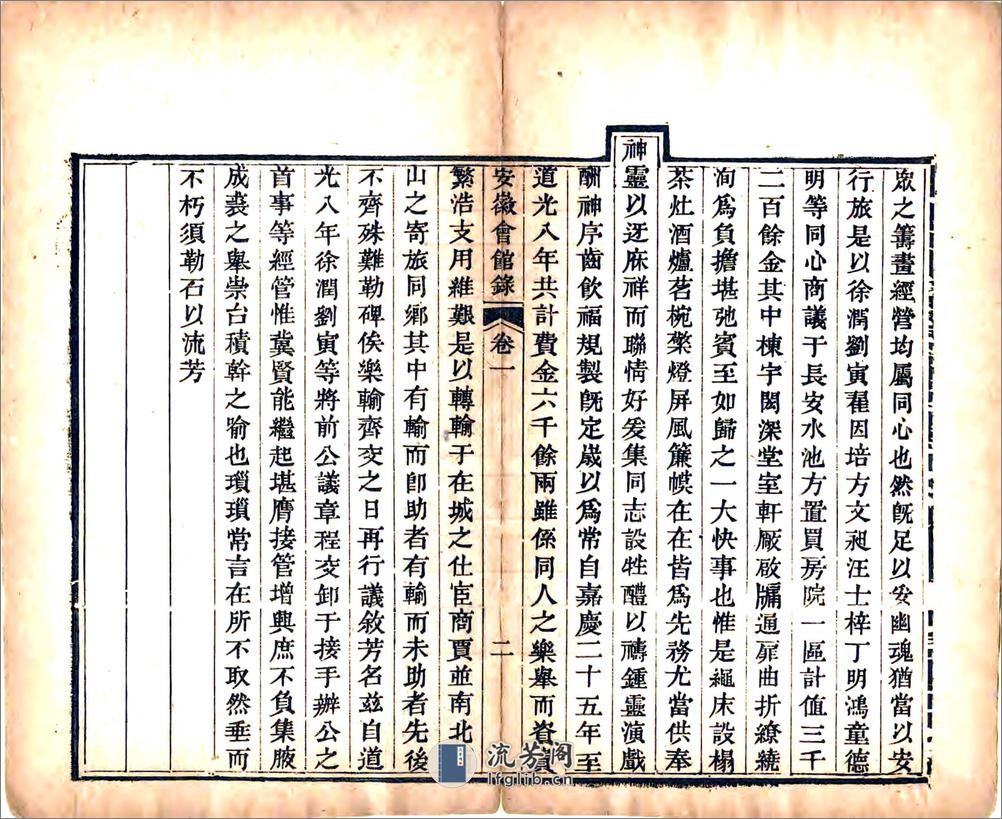 眾之籌畫經營均屬同心也然旣足以妥幽魂猶當以安
行旅是以徐潤劉寅翟因培方文昶汪士梓丁明鴻童德
明等同心商議于長安水池方置買房院一區計値三千
二百餘金其中棟宇閎深堂室軒厰啟牖通扉曲折繚繞
洵爲負擔堪弛賓至如歸之一大快事也惟是繩床設榻
茶灶酒爐茗椀檠燈屏風簾幙在在皆爲先務尤當供奉
神靈以迓庥祥而聯情好爰集同志設牲醴以禱鍾靈演戲
酬神序齒飲福規製旣定歲以爲常自嘉慶二十五年至
道光八年共計費金六千餘兩雖係同人之樂舉而資費
安徽會館錄 卷一 二
繁浩支用維艱是以轉輸于在城之仕宦商賈並南北
山之寄旅同鄉其中有輸而卽助者有輸而未助者先後
不齊殊難勒碑俟樂輸齊交之日再行議敘芳名茲自道
光八年徐潤劉寅等將前公議章程交卸于接手辦公之
首事等經管惟冀賢能繼起堪膺接管增興庶不負集腋
成裘之舉崇台積幹之喻也瑣瑣常言在所不取然垂而
不朽須勒石以流芳
流芳閣
lfglib.cn